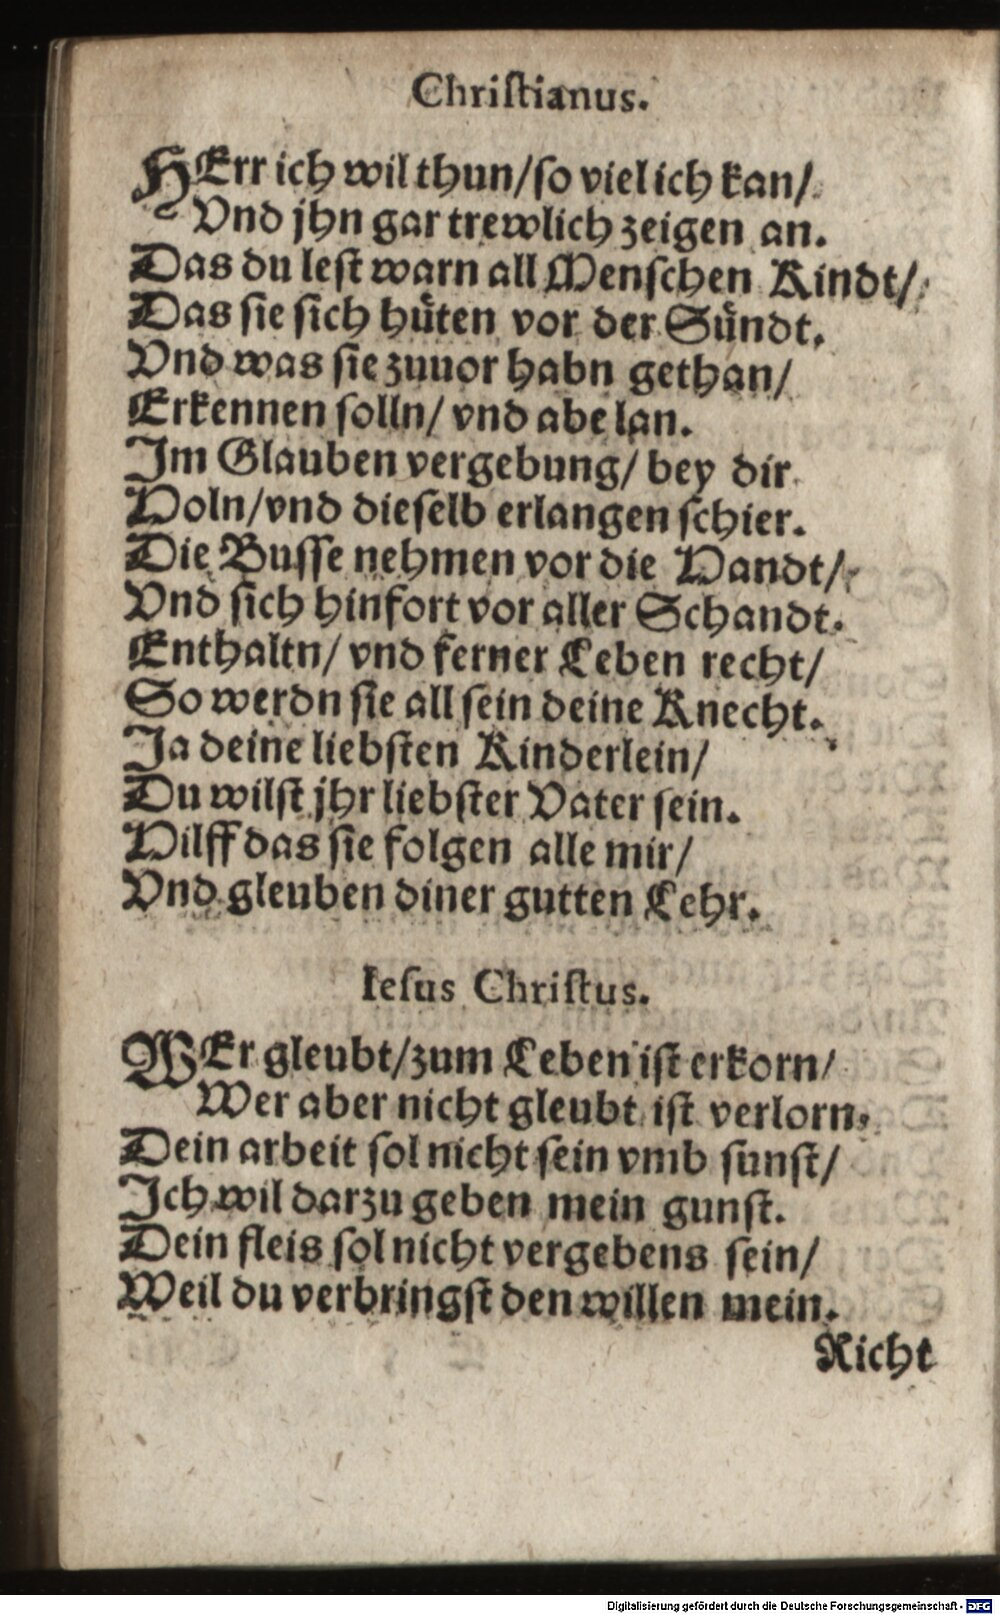 Christianus.
HErr ich wil thun/ so viel ich kan/
Vnd jhn gar trewlich zeigen an.
Das du lest warn all Menschen Kindt/
Das sie sich hüten vor der Sündt.
Vnd was sie zuuor habn gethan/
Erkennen solln/ vnd abe lan.
Im Glauben vergebung/ bey dir
Holn/ vnd dieselb erlangen schier.
Die Busse nehmen vor die Handt/
Vnd sich hinfort vor aller Schandt.
Enthaltn/ vnd ferner Leben recht/
So werdn sie all sein deine Knecht.
Ja deine liebsten Kinderlein/
Du wilst jhr liebster Vater sein.
Hilff das sie folgen alle mir/
Vnd gleuben diner gutten Lehr.
Iesus Christus.
WEr gleubt/ zum Leben ist erkorn/
Wer aber nicht gleubt ist verlorn,
Dein arbeit sol nicht sein vmb sunst/
Ich wil darzu geben mein gunst.
Dein fleis sol nicht vergebens sein/
Weil du verbringst den willen mein.
Richt
Digitalisierung gefördert durch die Deutsche Forschungsgemeinschaft - DFG